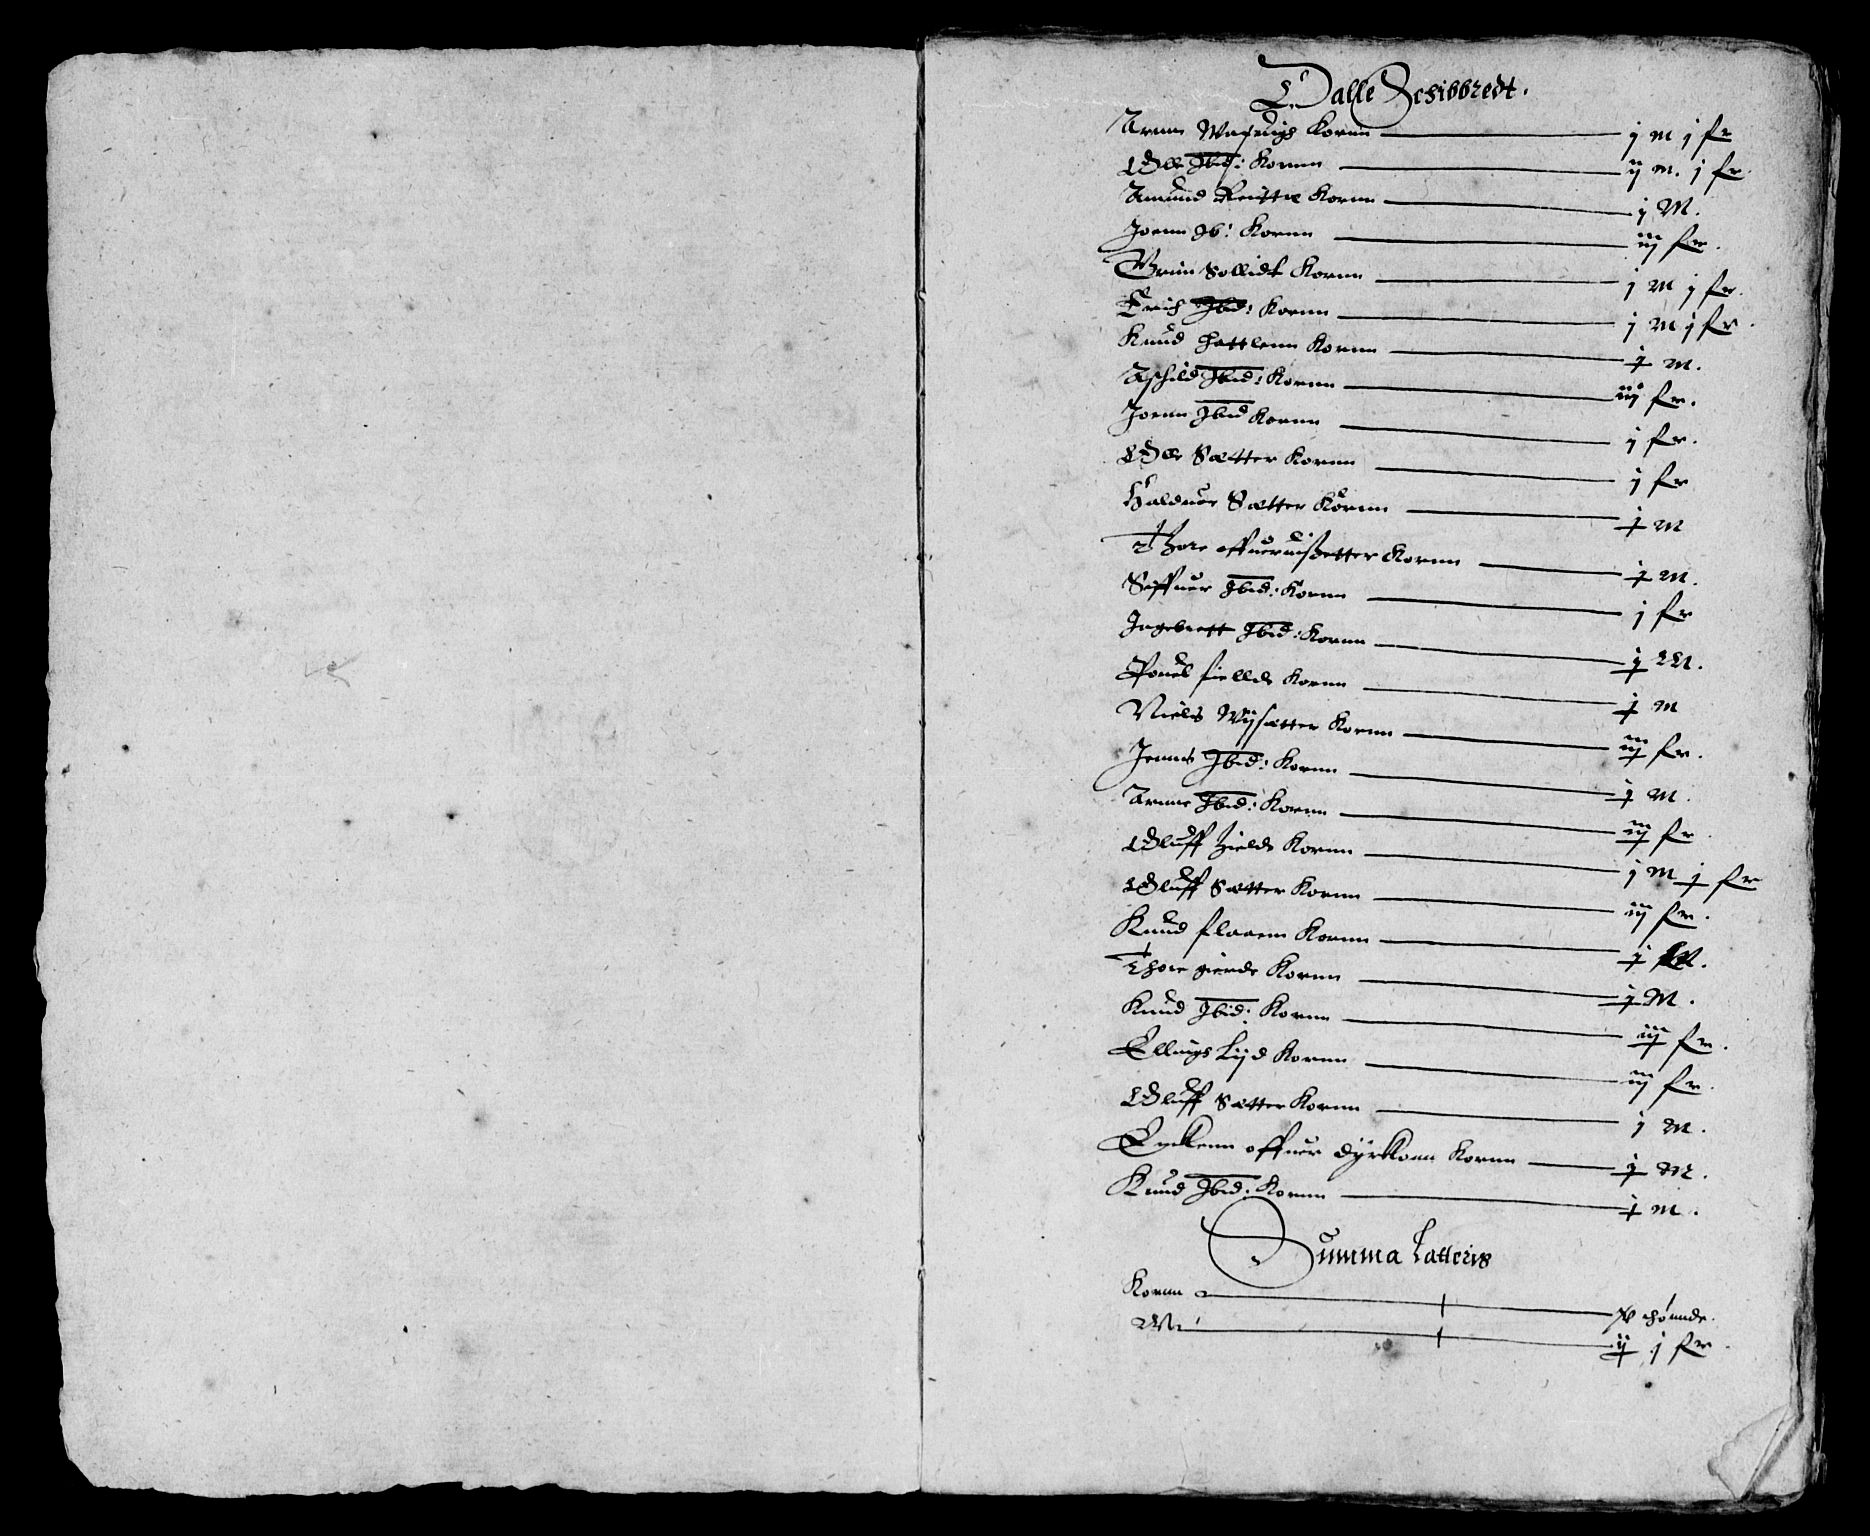 Dalle Schibbredt.
Arne Kornn j m j fr
Olle Ibid: Kornn ij m. j fr.
Amund Kornn j M.
Joenn Ib: Kornn iij fr.
Brunn Sollidt Kornn j m j fr.
Erich Ibid: Kornn j m j fr.
Knud hattlenn Kornn j m.
Aschild Ibid: Kornn iij fr.
Joenn Ibid Kornn j fr.
Olle Sætter Kornn j fr
Halduor Sætter Kornn j m
Thore offueruisetter Kornn j m.
Siffuer Ibid: Kornn j fr
Ingebrett Ibid: Kornn j M.
Pouel fiellde Kornn j m
Niels Wijsætter Kornn iij fr.
Jenns Ibid: Kornn j m.
Arnne Ibid: Kornn iij fr
Oluff Kornn j m j fr
Oluff Sætter Kornn iij fr.
Knud flaaenn Kornn j M.
Thore gierde Kornn j M.
Knud Ibid: Kornn iij fr.
Ellingh Lijd Kornn iij fr.
Oluff Sætter Kornn j m.
Enckenn offuer dyrkoen Kornn j m.
Knud Ibid: Kornn j m.
Summa Latteris
Kornn xv thønnde.
M: ij j fr.